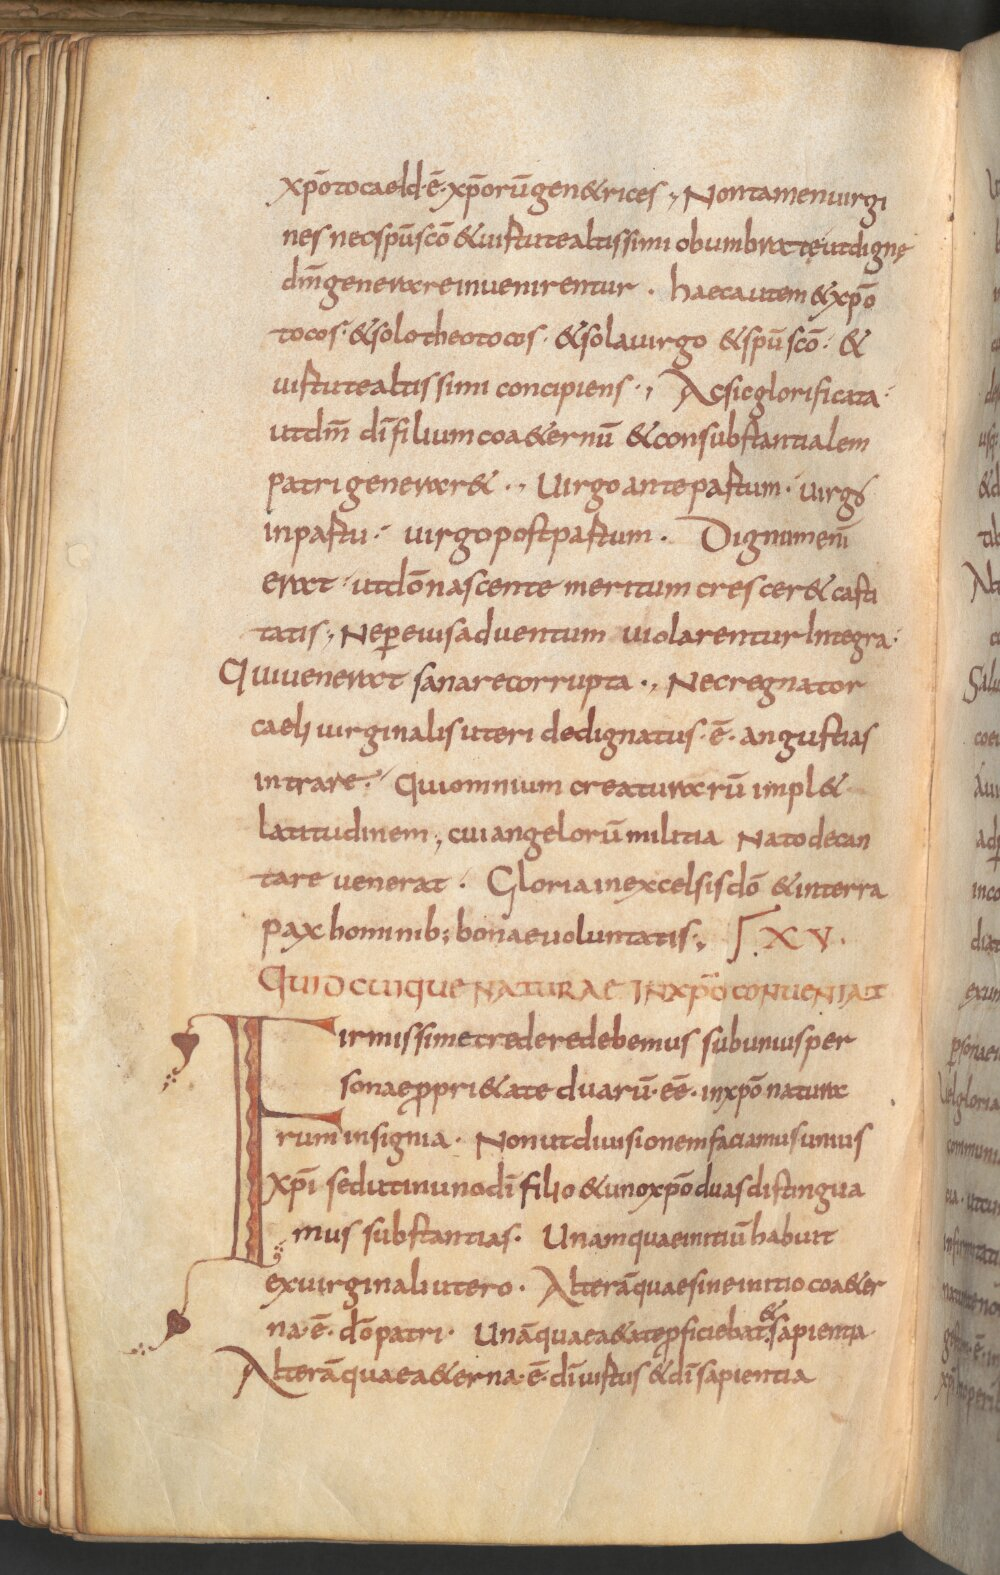 xp̄otocae ld·ē· xp̄orū gen&rices ., Non tamen uirgi
nes nec sp̄u scō & uirtute altissimi obumbratę ut dignę
dm̄ generare inuenirentur . haec autem & xp̄o
tocos· & solo theotocos· & sola uirgo & sp̄u scō· &
uirtute altissimi concipiens ·, Ac sic glorificata·
ut dm̄ dī filium coa&ernū & consubstantialem
patri generar& ·, Uirgo ante partum · uirgo
in partu · uirgo post partum . Dignum enī
erat · ut dō nascente meritum crescer& casti
tatis ·, Ne per eius aduentum uiolarentur Integra·
Qui uenerat sanare corrupta ·, Nec regnator
caeli uirginalis uteri dedignatus · ē · angustias
intrare · Qui omnium creaturarū impl&
latitudinem ·, cui angelorū militia Nato decan
tare uenerat . Gloria in excelsis dō & in terra
pax hominib; bonae uoluntatis ·, XV·
QUID CUIQUE NATURAE IN XP̄O CONUENIAT
Firmissime credere debemus sub unius per
sonae propri&ate duarū · eē · in xp̄o natura
rum insignia · Non ut diuisionem faciamus unius
xp̄i sed ut in uno dī filio & uno xp̄o duas distingua
mus substantias · Unam quae initiū habuit
ex uirginali utero · Alterā quae sine initio coa&er
na · ē · dō patri · Unā quae a&ate proficiebat & sapientia
Alterā quae a&erna · ē · dī uirtus & dī sapientia